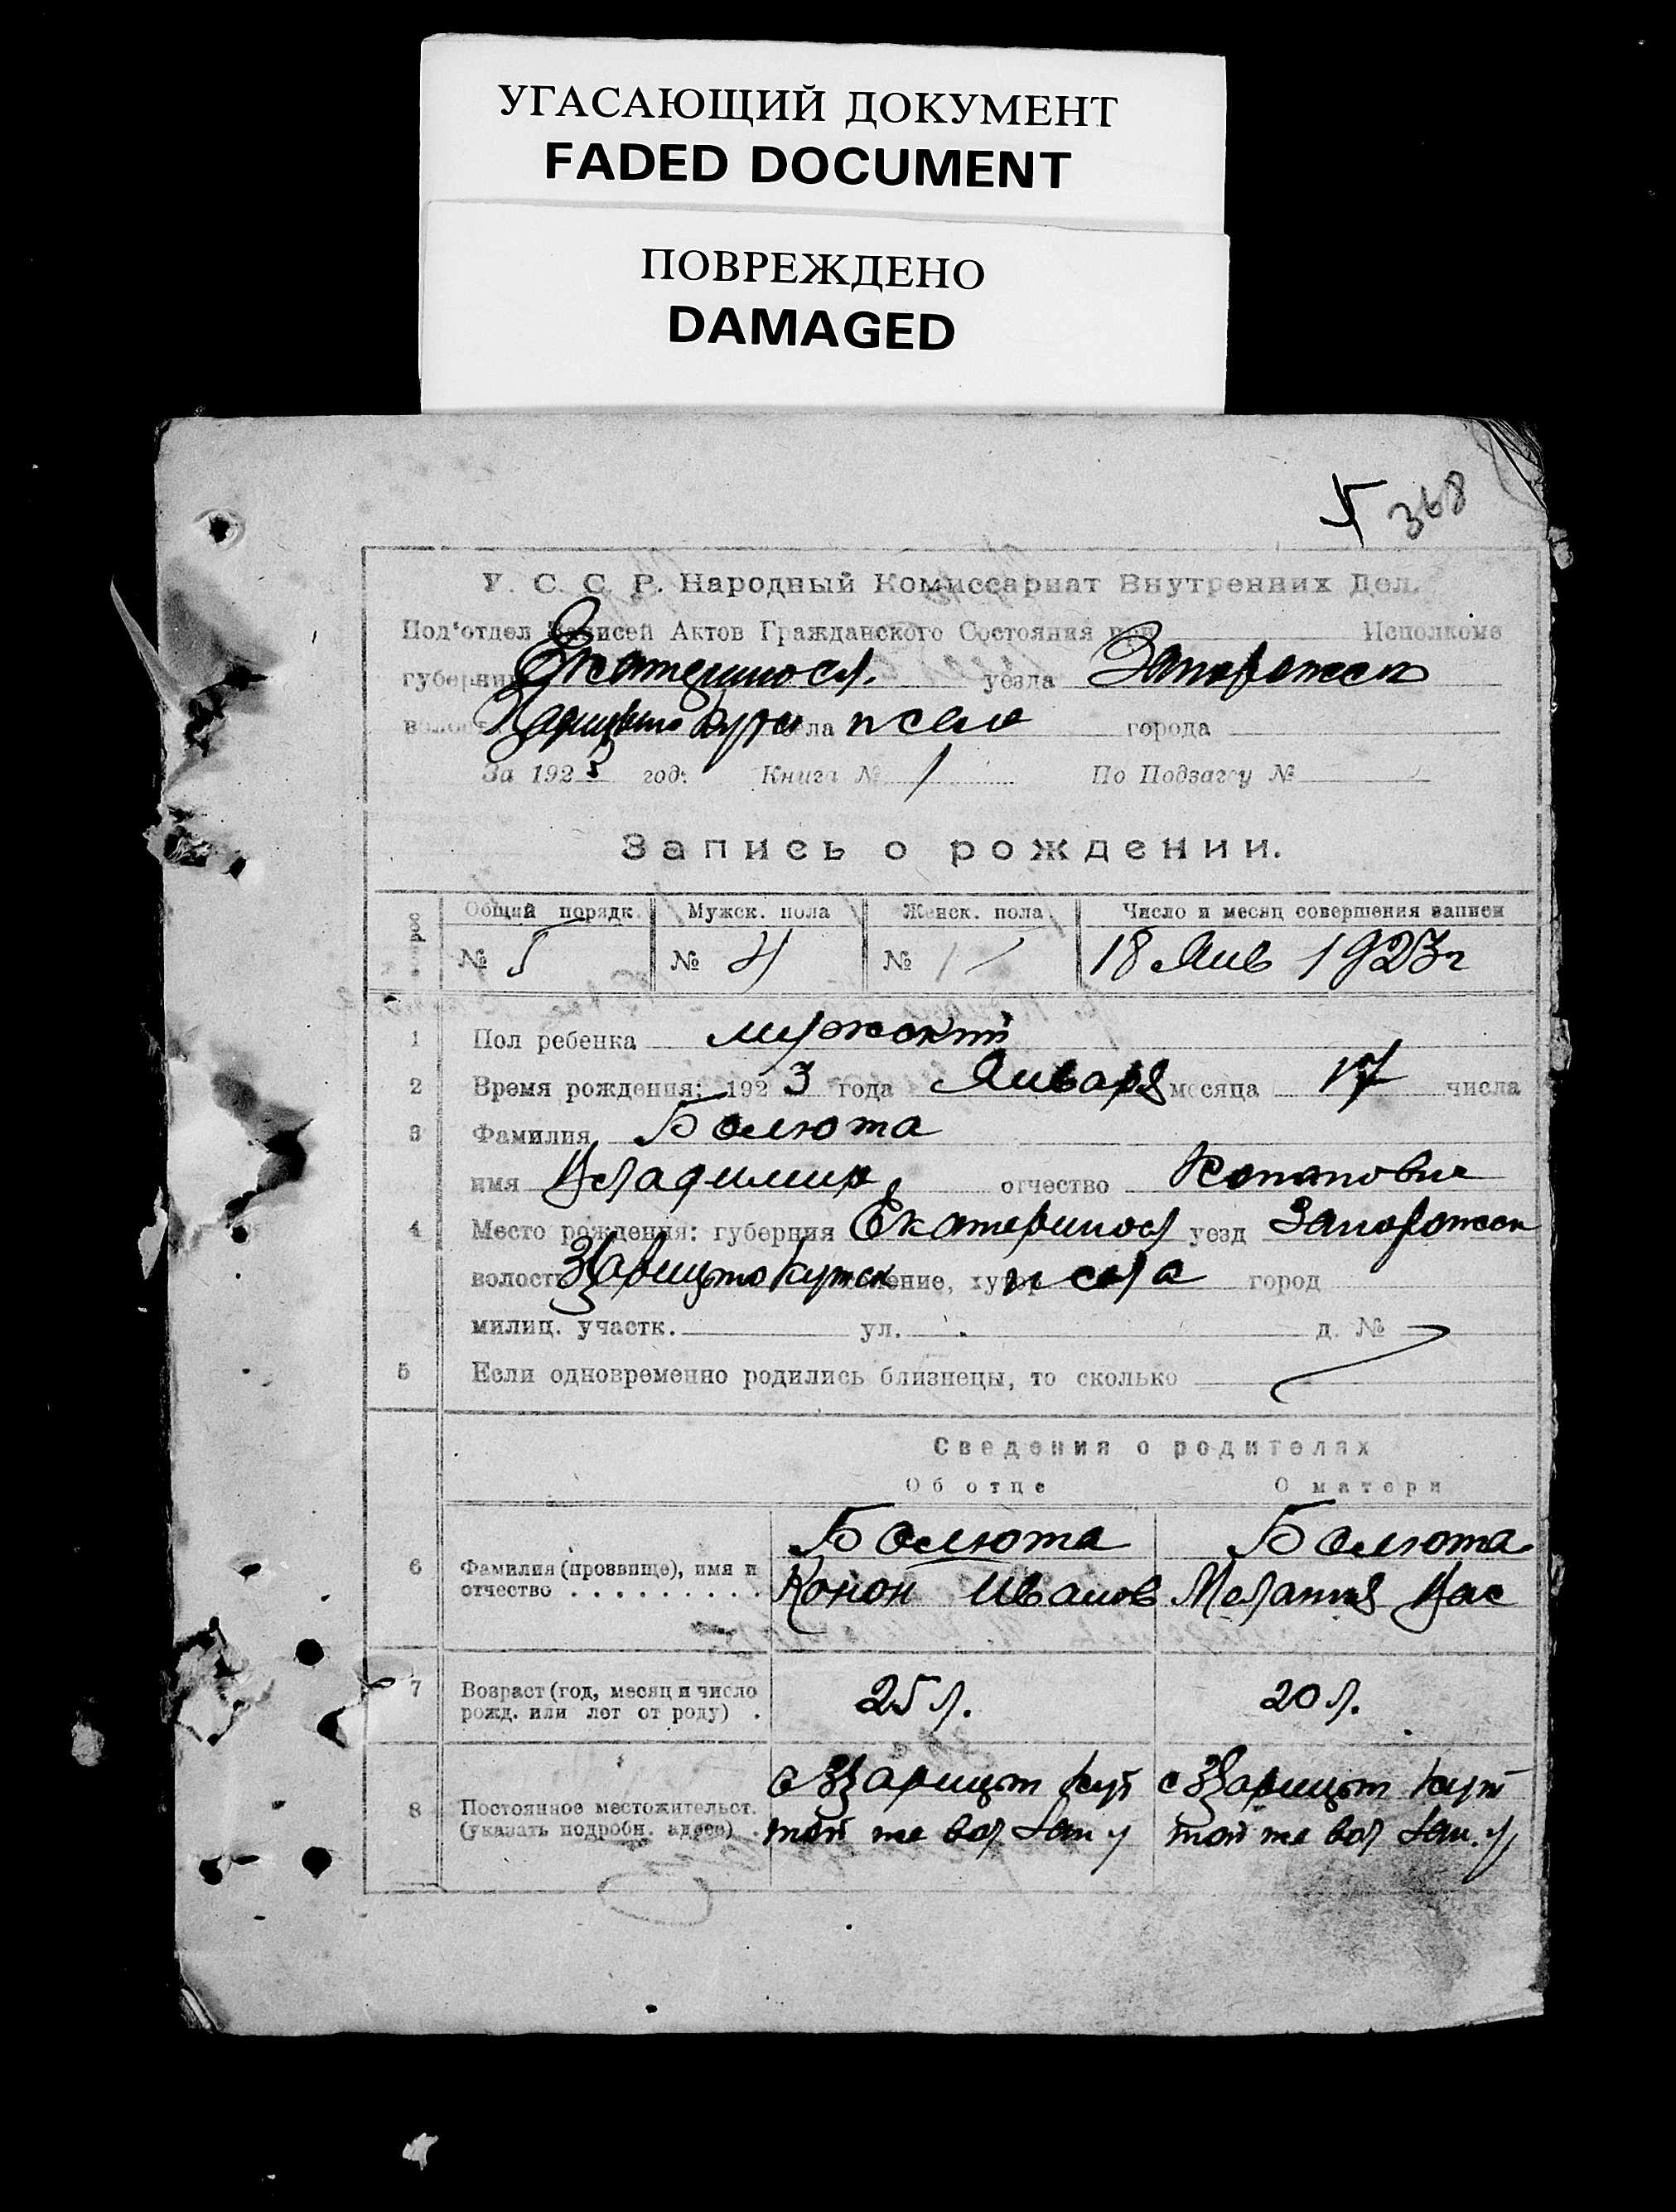 УГАСАЮЩИЙ ДОКУМЕНТ
FADED DOCUMENT
ПОВРЕЖДЕНО
DAMAGED
5 368
У. С. С. Р. Народный Комиссариат Внутренних Дел.
Под'отдел Записей Актов Гражданского Состояния при Исполкоме
губернии Екатериносл. уезда Запорожск
села и села города
За 1923 год: Книга № 1 По Подзагсу №
Запись о рождении.
Общий порядк. Мужск. пола Женск. пола Число и месяц совершения записи
№ 5 № 4 № 1 18 Янв 1923 г
1 Пол ребенка мужский
2 Время рождения: 1923 года Января месяца 17 числа
3 Фамилия Болюта
имя Владимир отчество Кононович
4 Место рождения: губерния Екатериносл уезд Запорожск
волость Царицынокутск селение, хутор и села город
милиц. участк. ул. д. №
5 Если одновременно родились близнецы, то сколько
Сведения о родителях
Об отце О матери
Болюта Болюта
6 Фамилия (прозвище), имя и отчество Конон Иванов Мелания Вас
7 Возраст (год, месяц и число рожд. или лет от роду) 25 л. 20 л.
с Царицын Кут с Царицын Кут
8 Постоянное местожительст. (указать подробн. адрес) той же вол Зап у той же вол Зап. у